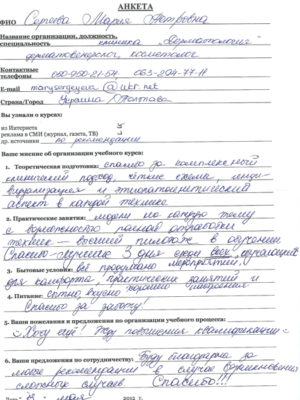 АНКЕТА
ФИО Сергеева Мария Петровна
Название организации, должность,
специальность клиника "Дерматология"
дерматовенеролог, косметолог
Контактные
телефоны
E-mail @ukr.net
Страна/Город Украина Полтава
Вы узнали о курсах:
из Интернета
реклама в СМИ (журнал, газета, ТВ)
др. источники по рекомендации
Ваше мнение об организации учебного курса:
1. Теоретическая подготовка: спасибо за комплексный
клинический подход, чёткие схемы, инди-
видуализация и этиопатогенетический
аспект в каждой технике.
2. Практические занятия: модели на каждую тему
с возможностью полной отработки
техник — высший пилотаж в обучении
Спасибо - лучшие 3 дня среди всех обучающих
мероприятий
3. Бытовые условия: всё продумано
для комфорта практических занятий и
4. Питание: сытно, вкусно
Спасибо за заботу!
5. Ваши пожелания и предложения по организации учебного процесса:
"Хочу ещё! Жду повышения квалификации"
6. Ваши предложения по сотрудничеству: Буду благодарна за
любые рекомендации в случае возникновения
сложных случаев Спасибо!!!
Дата мая 2012 г.